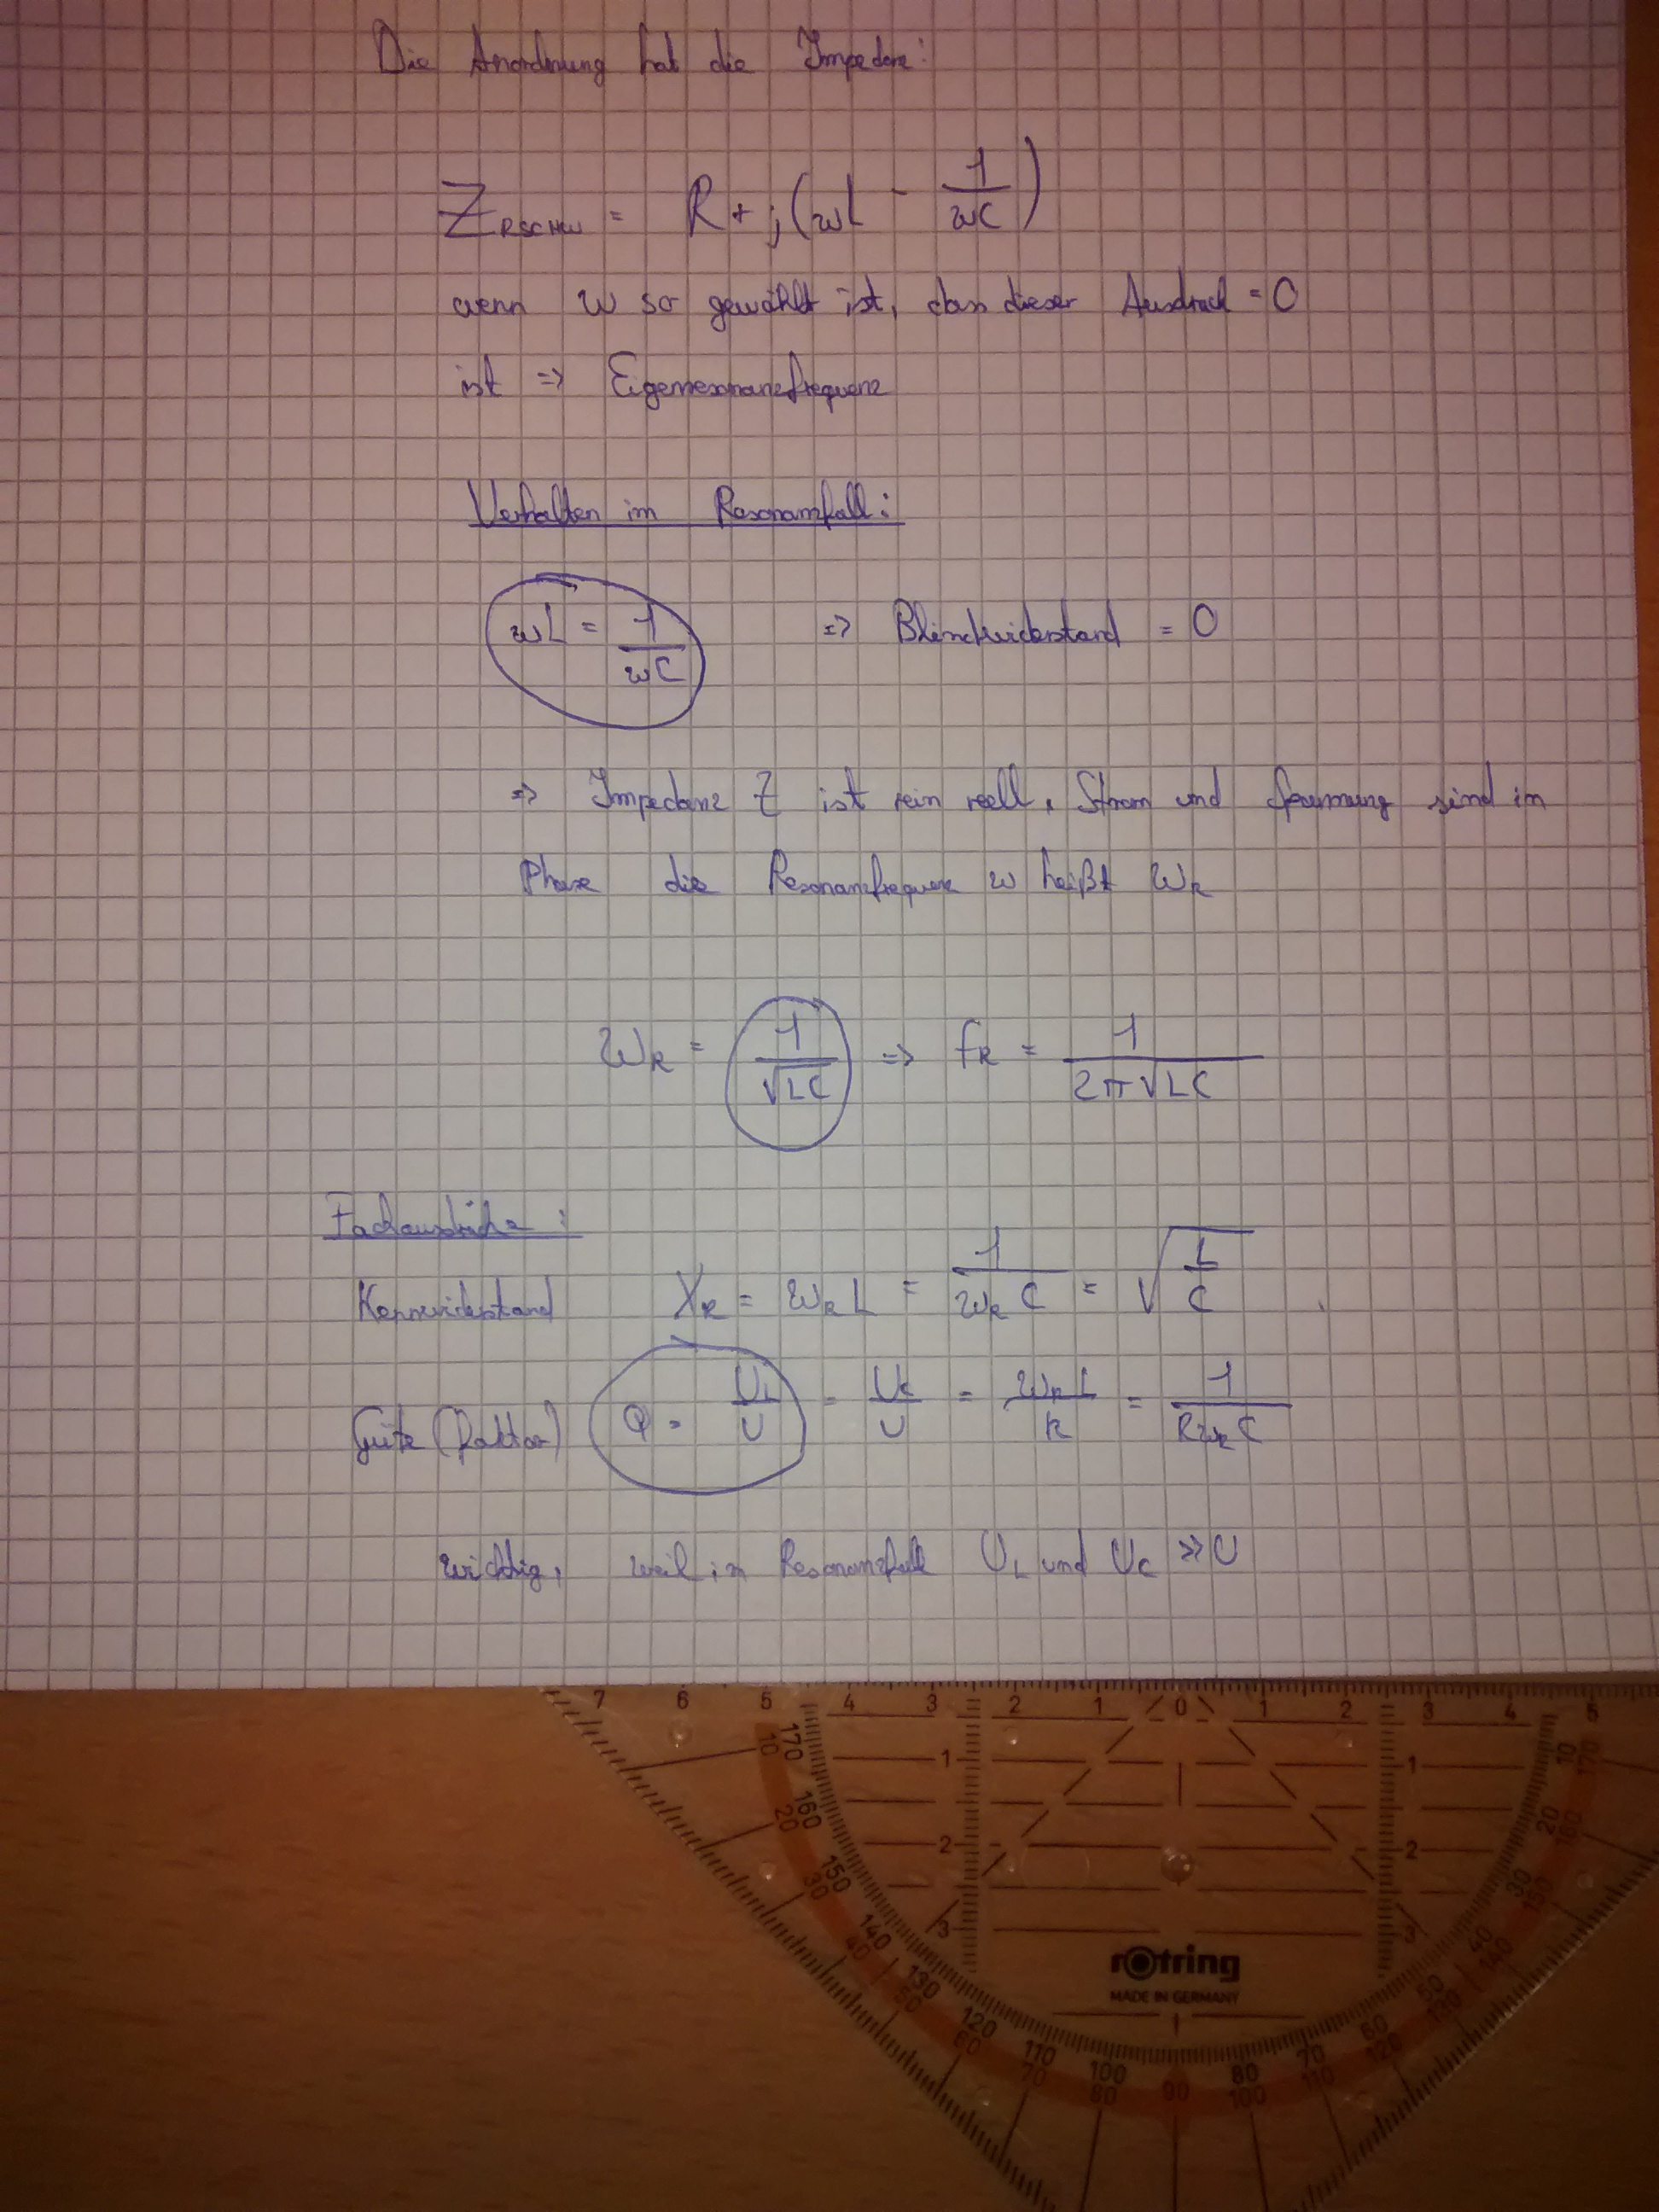 Die Anordnung hat die Impedanz:
Z_RSCHW = R + j(ωL - 1/(ωC))
wenn ω so gewählt ist, dass dieser Ausdruck = 0
ist => Eigenresonanzfrequenz
Verhalten im Resonanzfall:
ωL = 1/(ωC) => Blindwiderstand = 0
=> Impedanz Z ist rein reell, Strom und Spannung sind in
Phase die Resonanzfrequenz ω heißt ω_R
ω_R = 1/√(LC) => f_R = 1/(2π√(LC))
Fachausdrücke:
Kennwiderstand X_R = ω_R L = 1/(ω_R C) = √(L/C)
Güte (Faktor) Q = U_L/U = U_C/U = ω_R L/R = 1/(R ω_R C)
wichtig, weil im Resonanzfall U_L und U_C >> U
7 6 5 4 3 2 1 0 1 2 3 4 5
1 1
2 2
3 3
10 20 30 40 50 60 70 80 90 100 110 120 130 140 150 160 170
170 160 150 140 130 120 110 100 80 70 60 50 40 30 20 10
rotring
MADE IN GERMANY